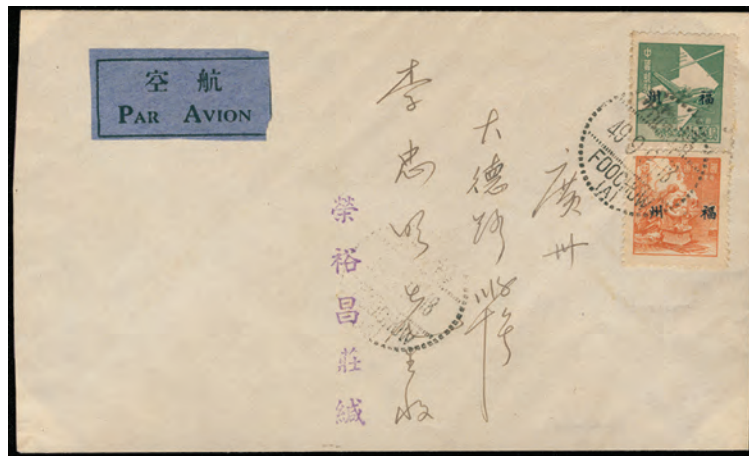 航空
PAR AVION
福州
FOOCHOW
(A)
福州
廣州
大德路
李忠明先生收
榮裕昌莊緘